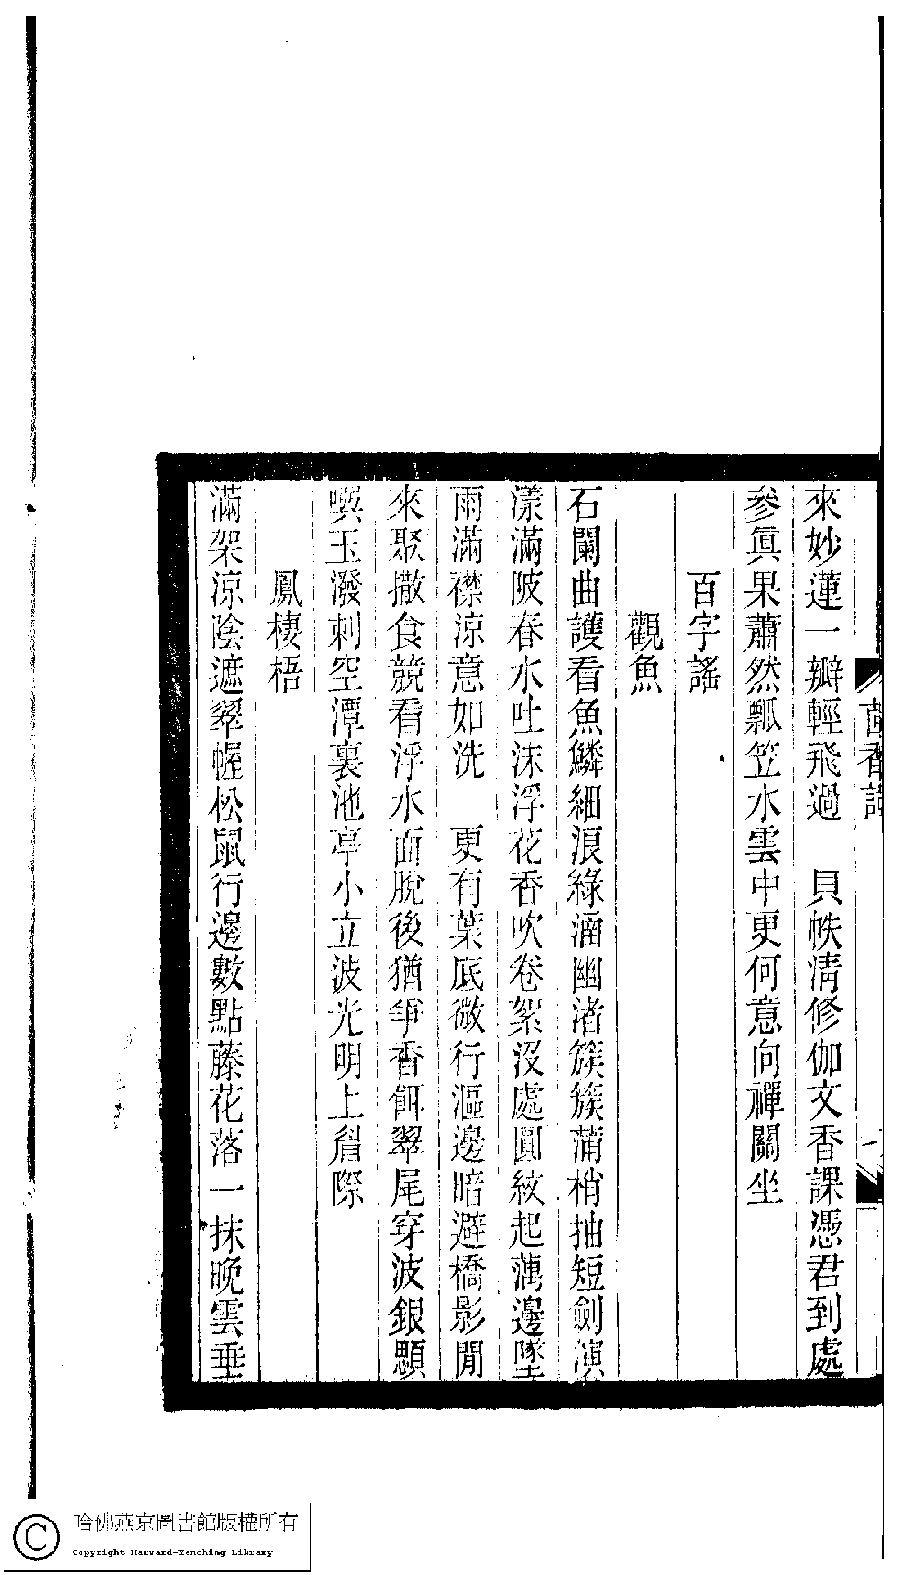 來妙蓮一瓣輕飛過　貝帙清修伽文香課憑君到處
參眞果蕭然瓢笠水雲中更何意向禪關坐
百字謠
觀魚
石闌曲護看魚鱗細浪綠滿幽渚簇簇蒲梢抽短劍演
漾滿陂春水吐沫浮花香吹卷絮沒處圓紋起藕邊墜
雨滿襟涼意如洗　更有葉底微行漚邊暗避橋影閒
來聚撒食競看浮水面脫後猶爭香餌翠尾穿波銀顋
噀玉潑刺空潭裏池亭小立波光明上眉際
鳳棲梧
滿架涼陰遮翠幄松鼠行邊數點藤花落一抹晚雲垂
香詞
哈佛燕京圖書館版權所有
Copyright Harvard-Yenching Library